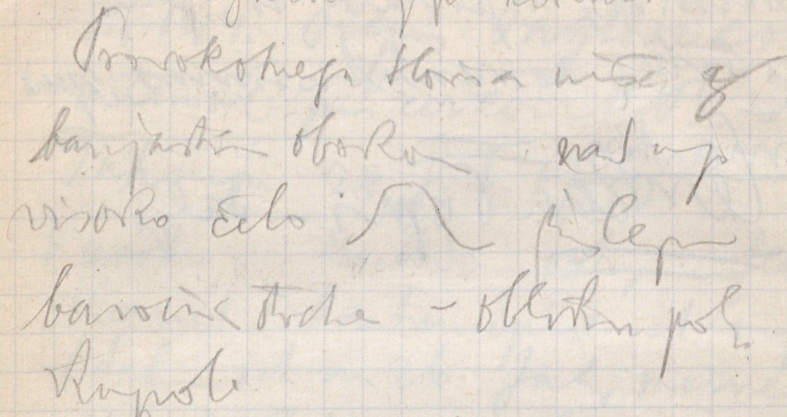 Pravokotnega tlorisa niša z
banjastim obokom nad njo
visoko čelo
baročna streha – oblika pol
kupole